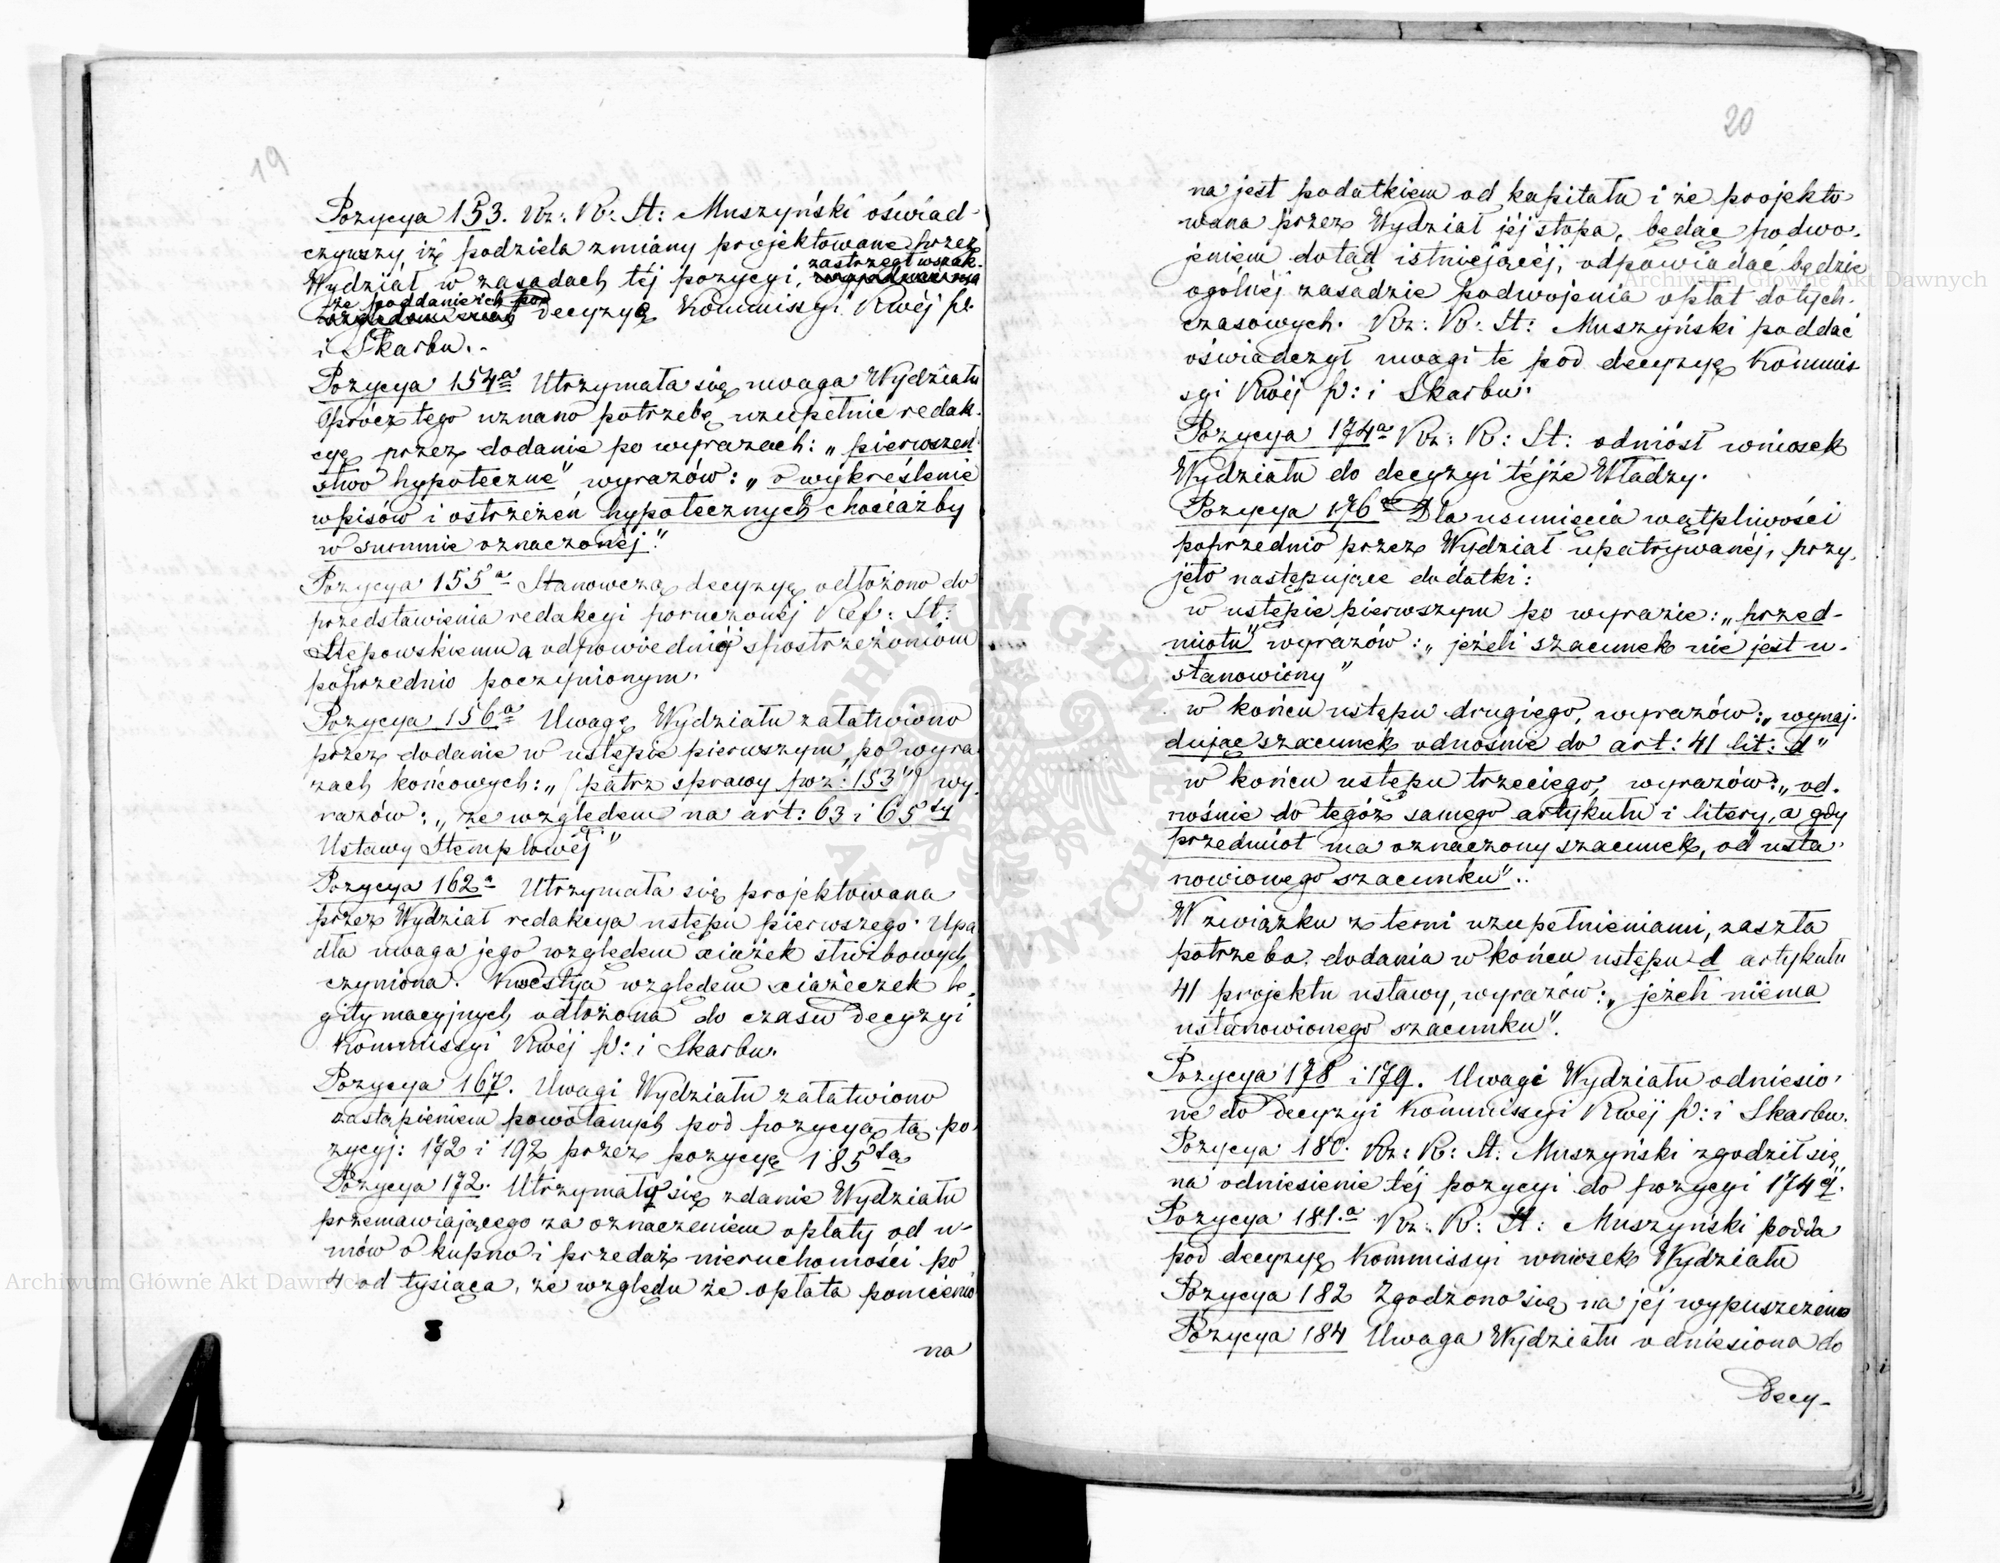 19
Pozycya 153. Rz: R: St: Muszyński oświad-
czywszy iż podziela zmiany projektowane przez
zastrzegł wszak-
Wydział w zasadach téj pozycyi,
że poddanie ich pod
decyzyę Kommissyi Rwéj P:
i Skarbu.-
Pozycya 154a Utrzymała się uwaga Wydziału
Oprócz tego uznano potrzebę uzupełnić redak-
cyę przez dodanie po wyrazach: „pierwszeń-
stwo hypoteczne" wyrazów: „o wykreślenie
wpisów i ostrzeżeń hypotecznych chociażby
w summie oznaczonéj."
Pozycya 155a Stanowczą decyzyę odłożono do
przedstawienia redakcyi poruczonéj Ref: St:
Stępowskiemu a odpowiedniéj spostrzeżeniom
poprzednio poczynionym.
Pozycya 156a Uwagę Wydziału załatwiono
przez dodanie w ustępie pierwszym, po wyra-
zach końcowych: „(patrz sprawy poz: 153") wy-
razów: „ze względem na art: 63 i 65ty
Ustawy Stemplowéj"
Pozycya 162a Utrzymała się projektowana
przez Wydział redakcya ustępu pierwszego. Upa-
dła uwaga jego względem xiążek służbowych
czyniona. Kwestya względem xiążeczek le-
gitymacyjnych odłożona do czasu decyzyi
Kommissyi Rwéj P: i Skarbu.
Pozycya 167. Uwagi Wydziału załatwiono
zastąpieniem powołanych pod pozycyą tą po-
zycyj: 172 i 192 przez pozycyę 185ta
Pozycya 172. Utrzymało się zdanie Wydziału
przemawiającego za oznaczeniem opłaty od u-
mów o kupno i przedaż nieruchomości po
4 od tysiąca, ze względu że opłata pomienio-
na
20
na jest podatkiem od kapitału i że projekto-
wana przez Wydział jéj stopa, będąc podwo-
jeniem dotąd istniejącéj, odpowiadać będzie
ogólnéj zasadzie podwojenia opłat dotych-
czasowych. Rz: R: St: Muszyński poddać
oświadczył uwagi te pod decyzyę Kommis-
syi Rwéj P: i Skarbu.
Pozycya 174a Rz: R: St: odniósł wniosek
Wydziału do decyzyi téjże Władzy.
Pozycya 176a Dla usunięcia wątpliwości
poprzednio przez Wydział upatrywanéj, przy-
jęto następujące dodatki:
w ustępie pierwszym po wyrazie: „przed-
miotu" wyrazów: „jeżeli szacunek nie jest u-
stanowiony"
w końcu ustępu drugiego, wyrazów: „wynaj-
dując szacunek odnośnie do art: 41 lit: d"
w końcu ustępu trzeciego, wyrazów: „od-
nośnie do tegóż samego artykułu i litery, a gdy
przedmiot ma oznaczony szacunek, od usta-
nowionego szacunku".
W związku z temi uzupełnieniami, zaszła
potrzeba dodania w końcu ustępu d artykułu
41 projektu ustawy, wyrazów: „jeżeli niéma
ustanowionego szacunku".
Pozycya 178 i 179. Uwagi Wydziału odniesio-
ne do decyzyi Kommissyi Rwéj P: i Skarbu.
Pozycya 180. Rz: R: St: Muszyński zgodził się
na odniesienie téj pozycyi do pozycyi 174éj.
Pozycya 181.a Rz: R: St: Muszyński podda
pod decyzyę Kommissyi wniosek Wydziału
Pozycya 182 Zgodzono się na jéj wypuszczenie
Pozycya 184 Uwaga Wydziału odniesiona do
decy-
Archiwum Główne Akt Dawnych
Archiwum Główne Akt Dawnych
ARCHIWUM GŁÓWNE AKT DAWNYCH